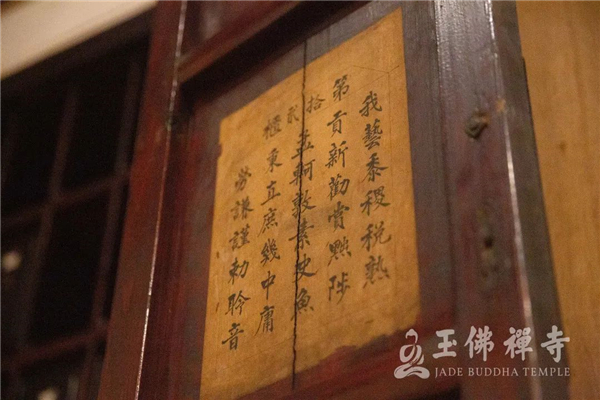 第拾貳櫃
我藝黍稷稅熟
貢新勸賞黜陟
孟軻敦素史魚
秉直庶幾中庸
勞謙謹勅聆音
玉佛禪寺
JADE BUDDHA TEMPLE